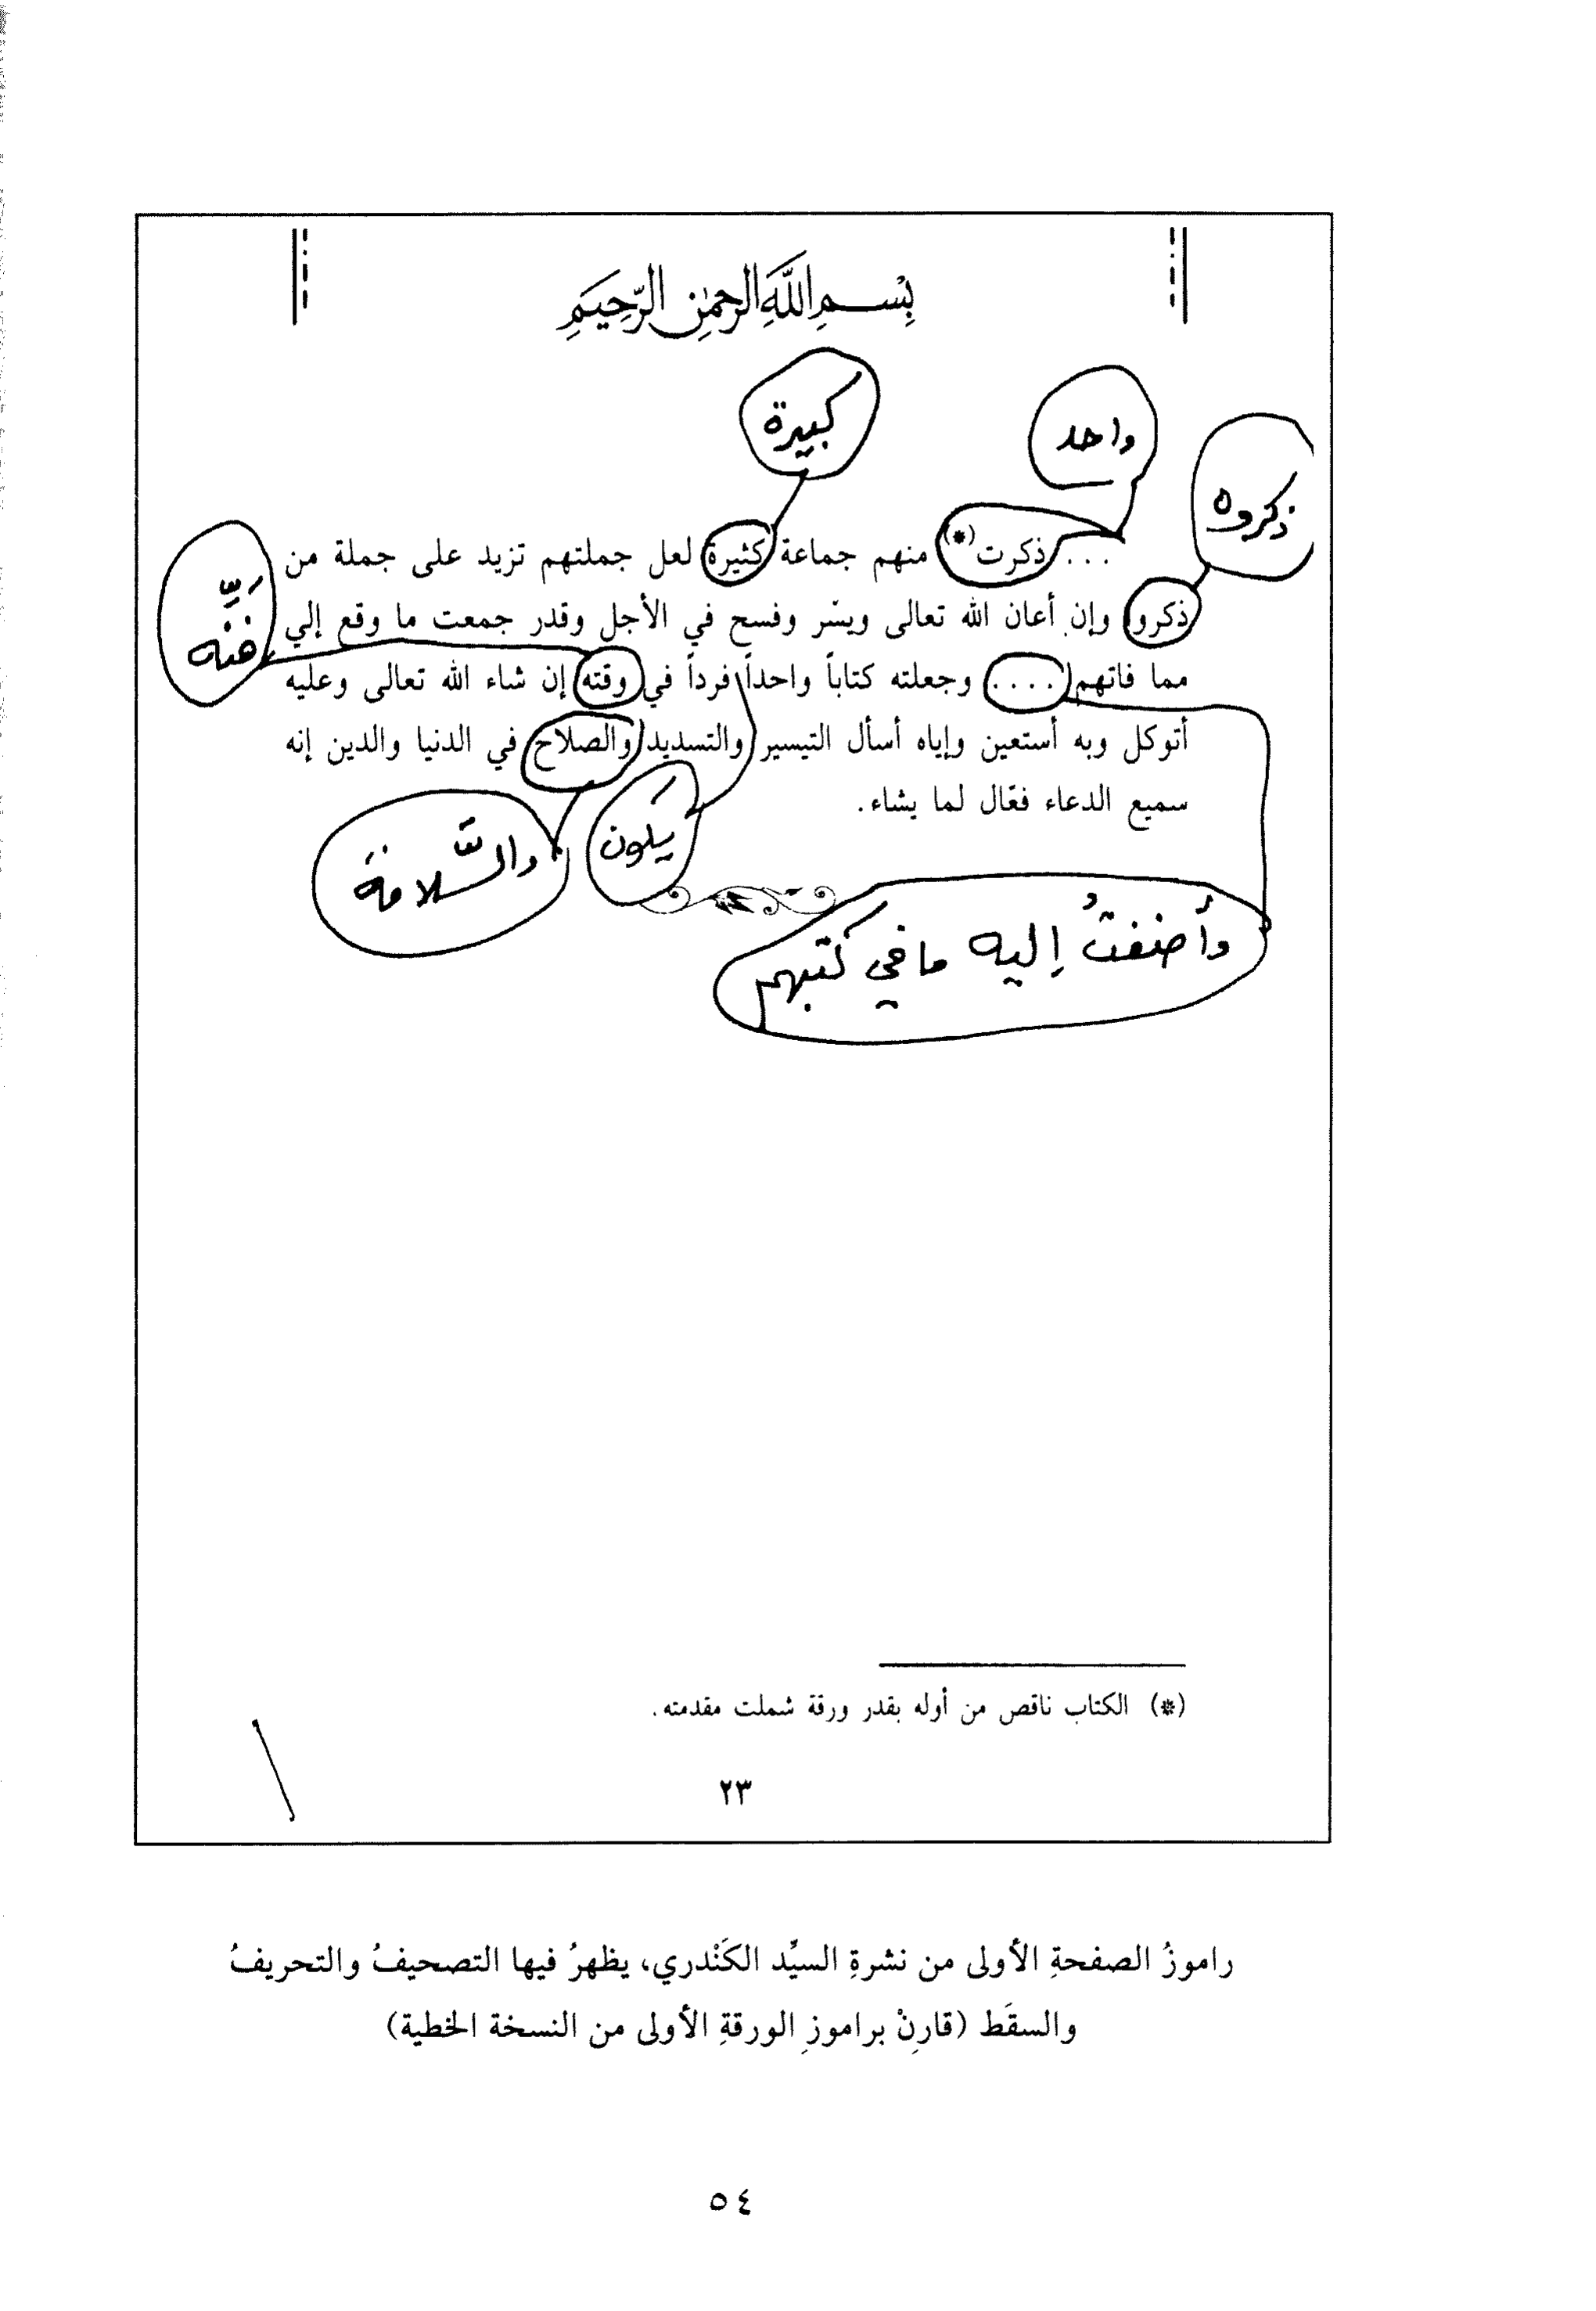 بِسْمِ اللَّهِ الرَّحْمٰنِ الرَّحِيمِ
كبيرة
واحد
ذكروه
... ذكرت(*) منهم جماعة كثيرة لعل جملتهم تزيد على جملة من
ذكروا وإن أعان الله تعالى ويسّر وفسح في الأجل وقدر جمعت ما وقع إلي
مما فاتهم .... وجعلته كتاباً واحداً فرداً في وقته إن شاء الله تعالى وعليه
أتوكل وبه أستعين وإياه أسأل التيسير والتسديد والصلاح في الدنيا والدين إنه
سميع الدعاء فعّال لما يشاء.
فَنِّه
يكون
والسَّلامة
وأضفتُ إليه ما في كتبهم
(*) الكتاب ناقص من أوله بقدر ورقة شملت مقدمته.
٢٣
راموزُ الصفحةِ الأولى من نشرةِ السيِّد الكَنْدري، يظهرُ فيها التصحيفُ والتحريفُ
والسقَط (قارِنْ براموزِ الورقةِ الأولى من النسخة الخطية)
٥٤